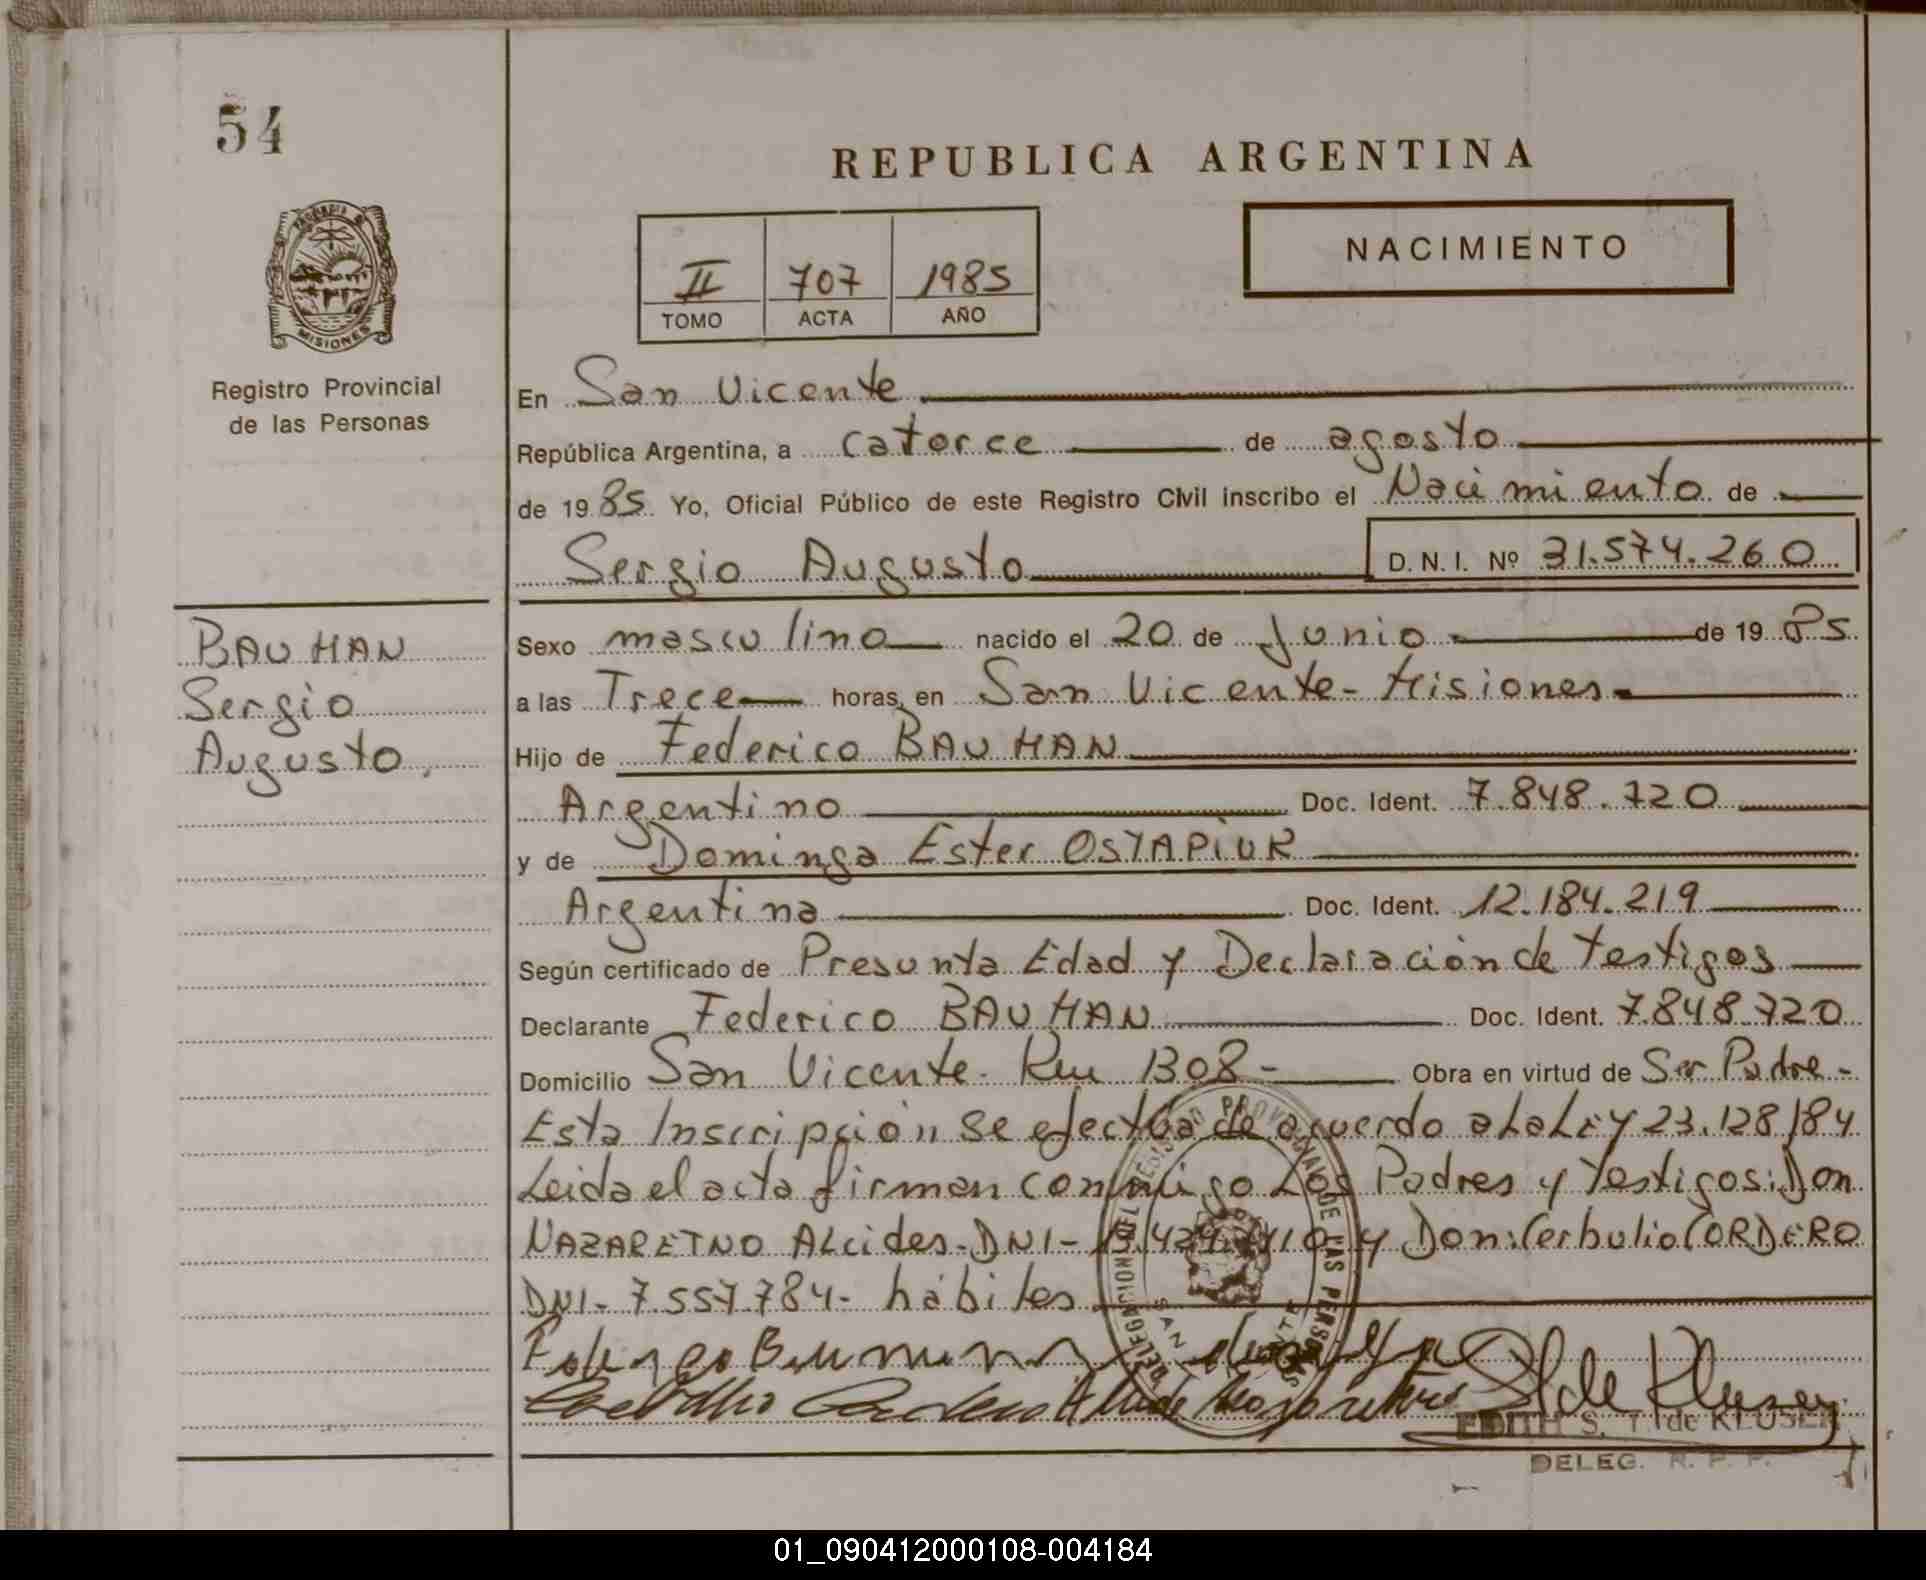 54
REPUBLICA ARGENTINA
NACIMIENTO
II 707 1985
TOMO ACTA AÑO
PROVINCIA DE MISIONES
Registro Provincial
de las Personas
En San Vicente
República Argentina, a catorce de agosto
de 1985 Yo, Oficial Público de este Registro Civil inscribo el Nacimiento de
Sergio Augusto D. N. I. Nº 31.574.260
BAUMAN
Sergio
Augusto,
Sexo masculino nacido el 20 de Junio de 1985
a las Trece horas, en San Vicente - Misiones
Hijo de Federico BAUMAN
Argentino Doc. Ident. 7.848.720
y de Dominga Ester OSTAPIUK
Argentina Doc. Ident. 12.184.219
Según certificado de Presunta Edad y Declaración de Testigos
Declarante Federico BAUMAN Doc. Ident. 7.848.720
Domicilio San Vicente - Km 1308 - Obra en virtud de Ser Padre -
Esta Inscripción se efectúa de acuerdo a la Ley 23.128/84
Leida el acta firman conmigo Los Padres y Testigos: Don
Alcides - DNI - y Don: CORDERO
DNI - 7.557.784 - hábiles
DELEGACION DEL REGISTRO PROVINCIAL DE LAS PERSONAS
SAN VICENTE
EDITH S. T. de KLUSENER
DELEG. R. P. P.
01_090412000108-004184